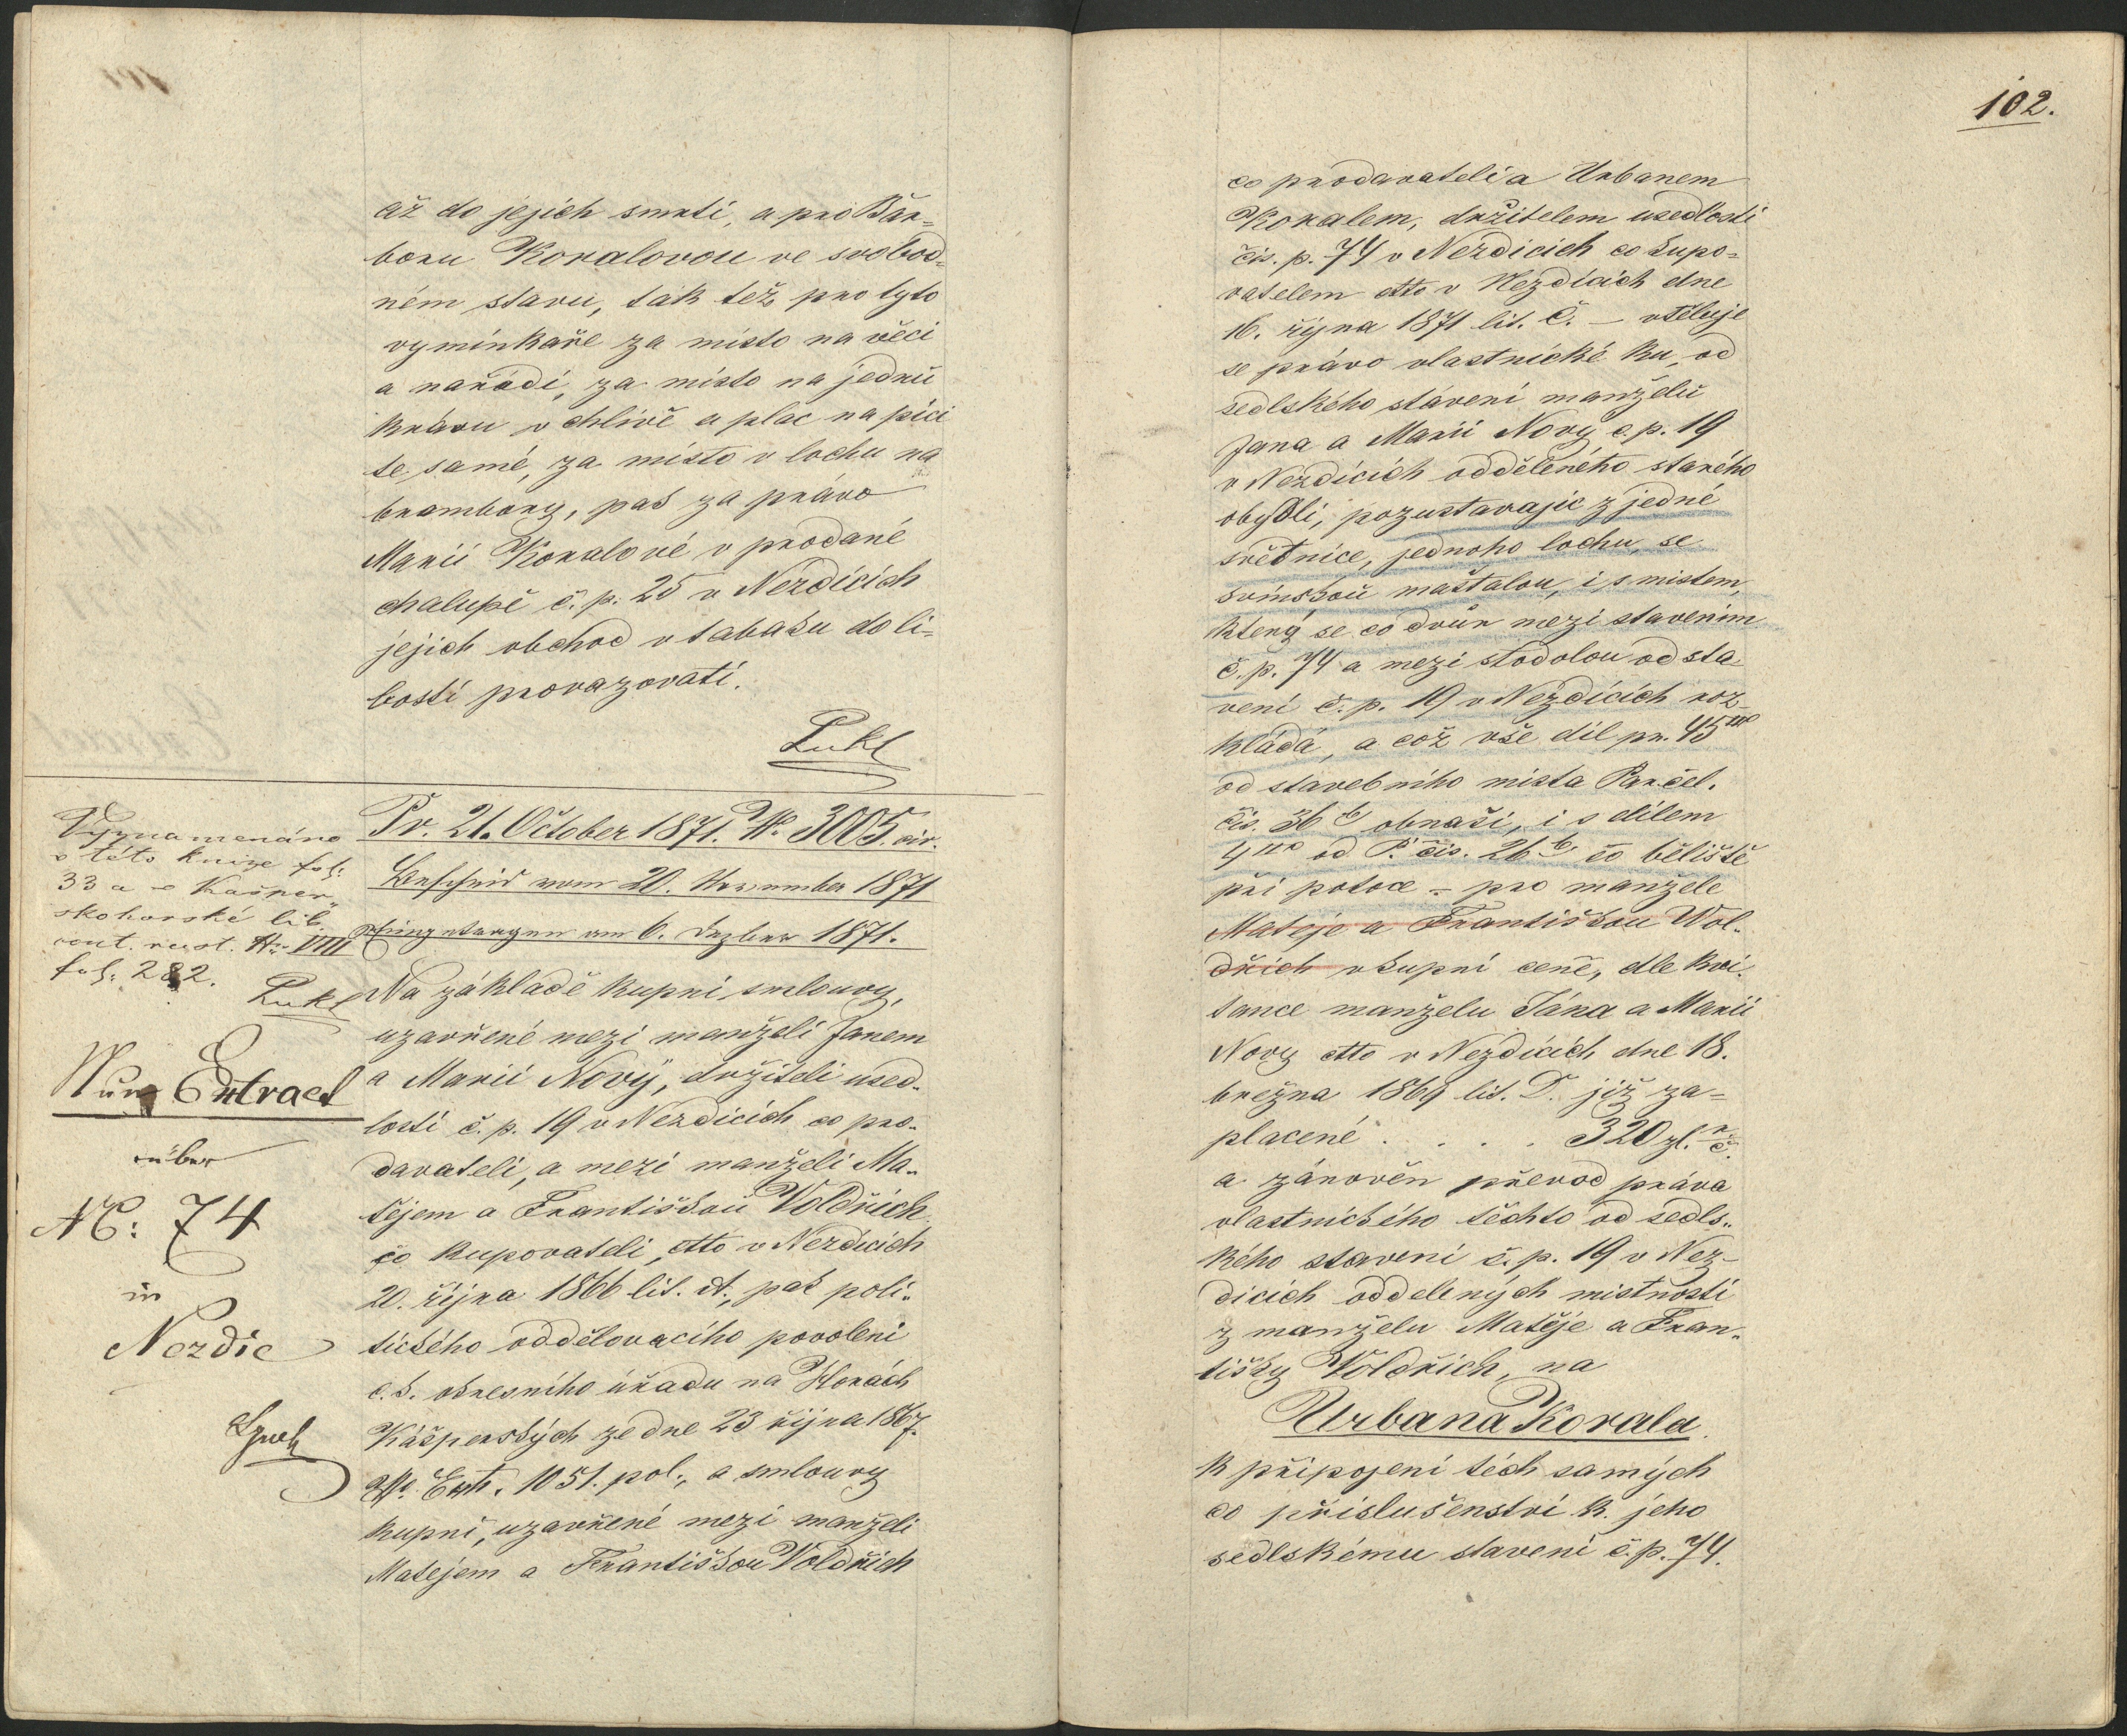 až do jejich smrti, a pro Bár=
boru Koralovou ve svobod=
ném stavu, ták též pro tyto
vymínkaře za místo na věci
a nařádí, za místo na jednú
krávu v chlívě a plac na píci
te samé, za místo v lochu na
brambory, pak za právo
Marii Koralové v prodané
chalupě č. p. 25 v Nezdicích
jejich obchod v tabaku do li=
bosti provazovati.
Lukl
Vyznamenáno
v této knize fol:
33 a v Kašper„
skohorské lib.
cont. rust. No VIII
fol: 282.
Lukl
Nur Extract
über
NC: 74
in
Nezdic
Pr. 21. October 1871. No 3005. civ.
Bescheid vom 20. November 1871
eingetragen am 6. Dezber 1871.
Na základě kupní smlouvy,
uzavřené mezi manželi Janem
a Marií Nový, držiteli used„
losti č. p. 19 v Nezdicích co pro„
davateli, a mezi manželi Ma„
tějem a Františkoú Voldřich
co kupovateli, dtto v Nezdicích
20. října 1866 lit. A., pak poli„
tického oddělovacího povolení
c. k. okresního úřadu na Horách
Kášperských ze dne 23 října 1867.
No Exh. 1051. pol., a smlouvy
kupní, uzavřené mezi manželi
Matějem a Františkou Voldřich
102.
co prodavateli a Urbanem
Koralem, držitelem usedlosti
čís. p. 74 v Nezdicích co kupo=
vatelem dtto v Nezdicích dne
16. října 1871 lit. C. – vtěluje
se právo vlastnické ku, od
sedlského stávení manželů
Jana a Marii Novy č. p. 19
v Nezdicích odděleného starého
obydlí, pozustavajíc z jedné
světnice, jednoho lochu, se
svinskoů maštalou, i s místem,
který se co dvůr mezi stavením
č. p. 74 a mezi stodolou od sta
vení č. p. 19 v Nezdicích roz„
kládá, a což vše díl pr. 45
od stavebního místa Parcel.
čís. 36 b obnaší, i s dílem
4 od P. čís. 26 b. co běliště
při potoce – pro manžele
Matěje a Františkou Wol„
dřich v kupní ceně, dle kvi„
tance manželu Jána a Marii
Novy dtto v Nezdicích dne 18.
března 1869 lit. D. již za=
placené . . . . 320 zl. r. č.
a zárověn převod práva
vlastnického těchto od sedls„
kého stavení č. p. 19 v Nez„
dicích oddelených místností
z manželu Matěje a Fran„
tišky Voldřich, na
Urbana Korala.
k připojení těch samých
co příslušenství k. jeho
sedlskému stavení č. p. 74.